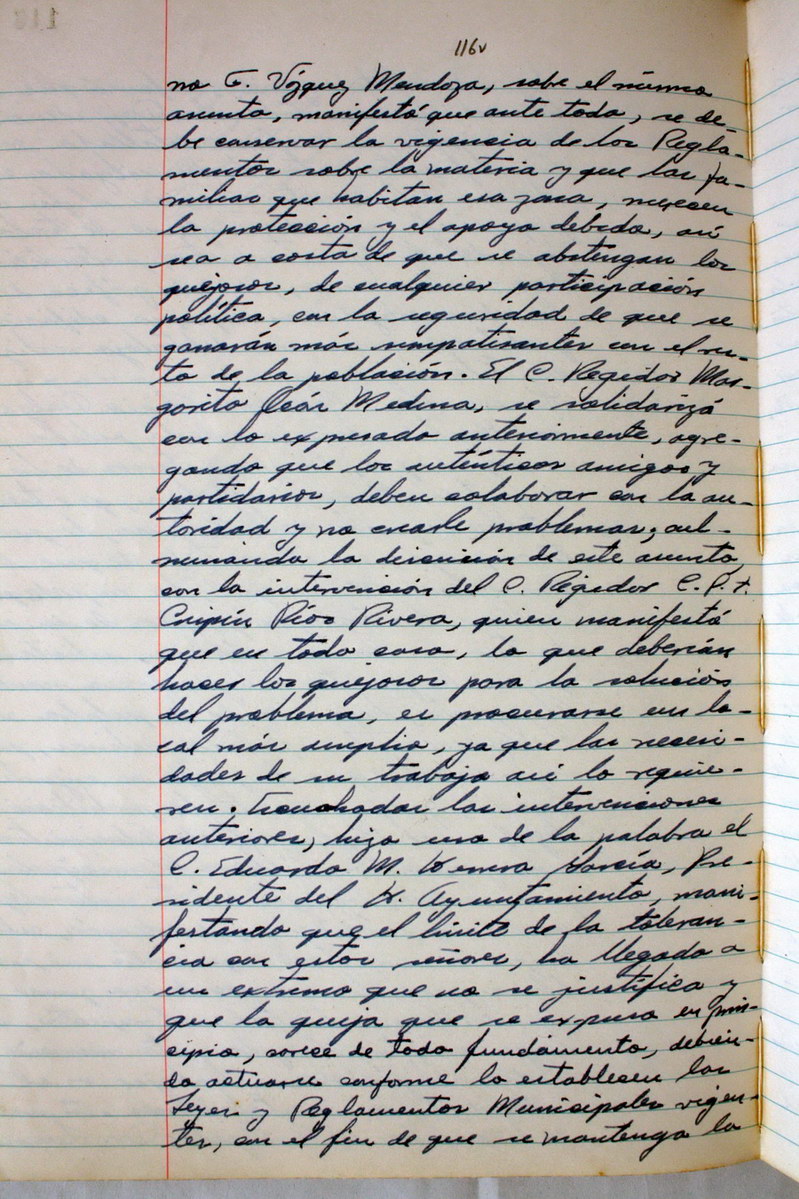 116v
no F. Vázquez Mendoza, sobre el mismo
asunto, manifestó que ante todo, se de-
be conservar la vigencia de los Regla-
mentos sobre la materia y que las fa-
milias que habitan esa zona, merecen
la protección y el apoyo debido, así
sea a costa de que se abstengan los
quejosos, de cualquier participación
política, con la seguridad de que se
ganarán más simpatizantes con el res-
to de la población. El C. Regidor Mar-
garito Medina, se solidarizó
con lo expresado anteriormente, agre-
gando que los auténticos amigos y
partidarios, deben colaborar con la au-
toridad y no crearle problemas; cul-
minando la discusión de este asunto,
con la intervención del C. Regidor C.P.T.
Crispín Ríos Rivera, quien manifestó
que en todo caso, lo que deberían
hacer los quejosos para la solución
del problema, es procurarse un lo-
cal más amplio, ya que las necesi-
dades de su trabajo así lo requie-
ren. Escuchadas las intervenciones
anteriores, hizo uso de la palabra el
C. Eduardo M. García, Pre-
sidente del H. Ayuntamiento, mani-
festando que el límite de la toleran-
cia con estos señores, ha llegado a
un extremo que no se justifica y
que la queja que se expuso en prin-
cipio, carece de todo fundamento, debien-
do actuarse conforme lo establecen las
Leyes y Reglamentos Municipales vigen-
tes, con el fin de que se mantenga la